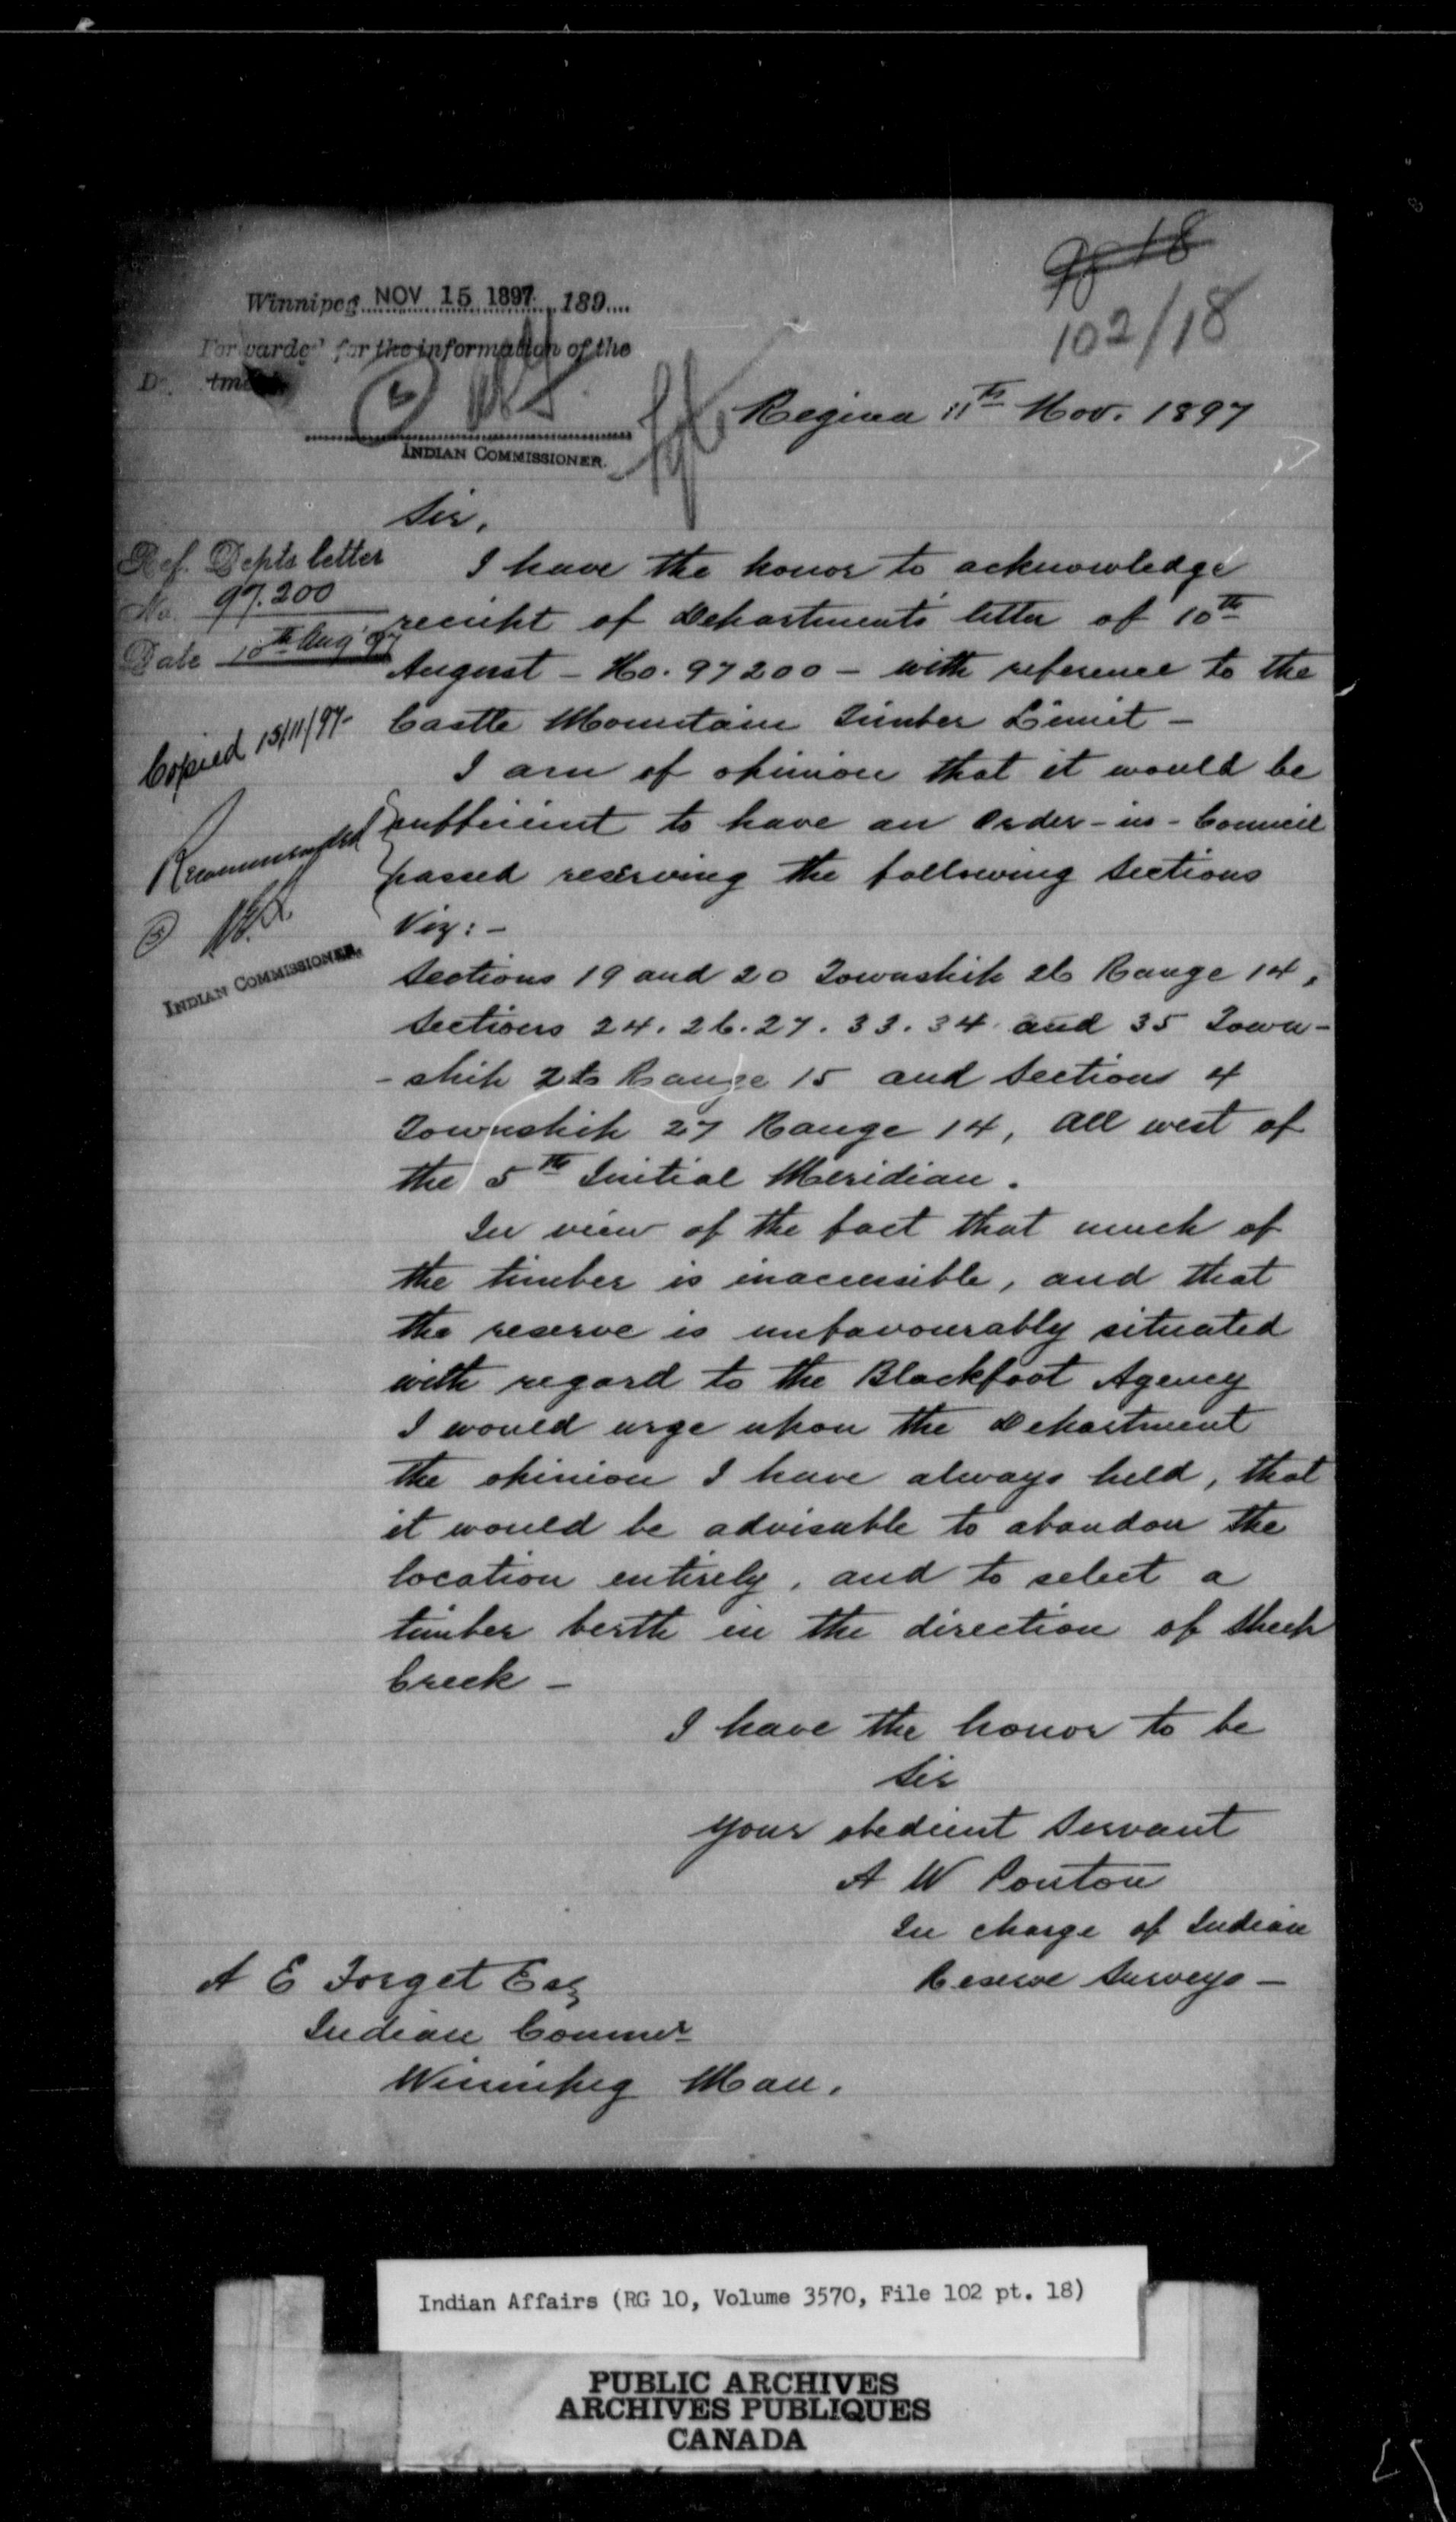 98-18
102/18
Winnipeg NOV 15 1897 189....
Forwarded for the information of the
INDIAN COMMISSIONER.
Regina 11th Nov. 1897
Sir,
Ref. Depts letter
No. 97.200
Date 10th Aug 97
Copied 15/11/97-
Recommended
INDIAN COMMISSIONER.
I have the honor to acknowledge
receipt of Department's letter of 10th
August - No. 97200 - with reference to the
Castle Mountain Timber Limit -
I am of opinion that it would be
sufficient to have an Order-in-Council
passed reserving the following sections
Viz: -
Sections 19 and 20 Township 26 Range 14,
Sections 24. 26. 27. 33. 34. and 35 Town-
-ship 26 Range 15 and Section 4
Township 27 Range 14, all west of
the 5th Initial Meridian.
In view of the fact that much of
the timber is inaccessible, and that
the reserve is unfavourably situated
with regard to the Blackfoot Agency
I would urge upon the Department
the opinion I have always held, that
it would be advisable to abandon the
location entirely, and to select a
timber berth in the direction of Sheep
Creek -
I have the honor to be
Sir
Your obedient Servant
A W Ponton
In charge of Indian
Reserve Surveys -
A E Forget Esq
Indian Commr
Winnipeg Man.
Indian Affairs (RG 10, Volume 3570, File 102 pt. 18)
PUBLIC ARCHIVES
ARCHIVES PUBLIQUES
CANADA